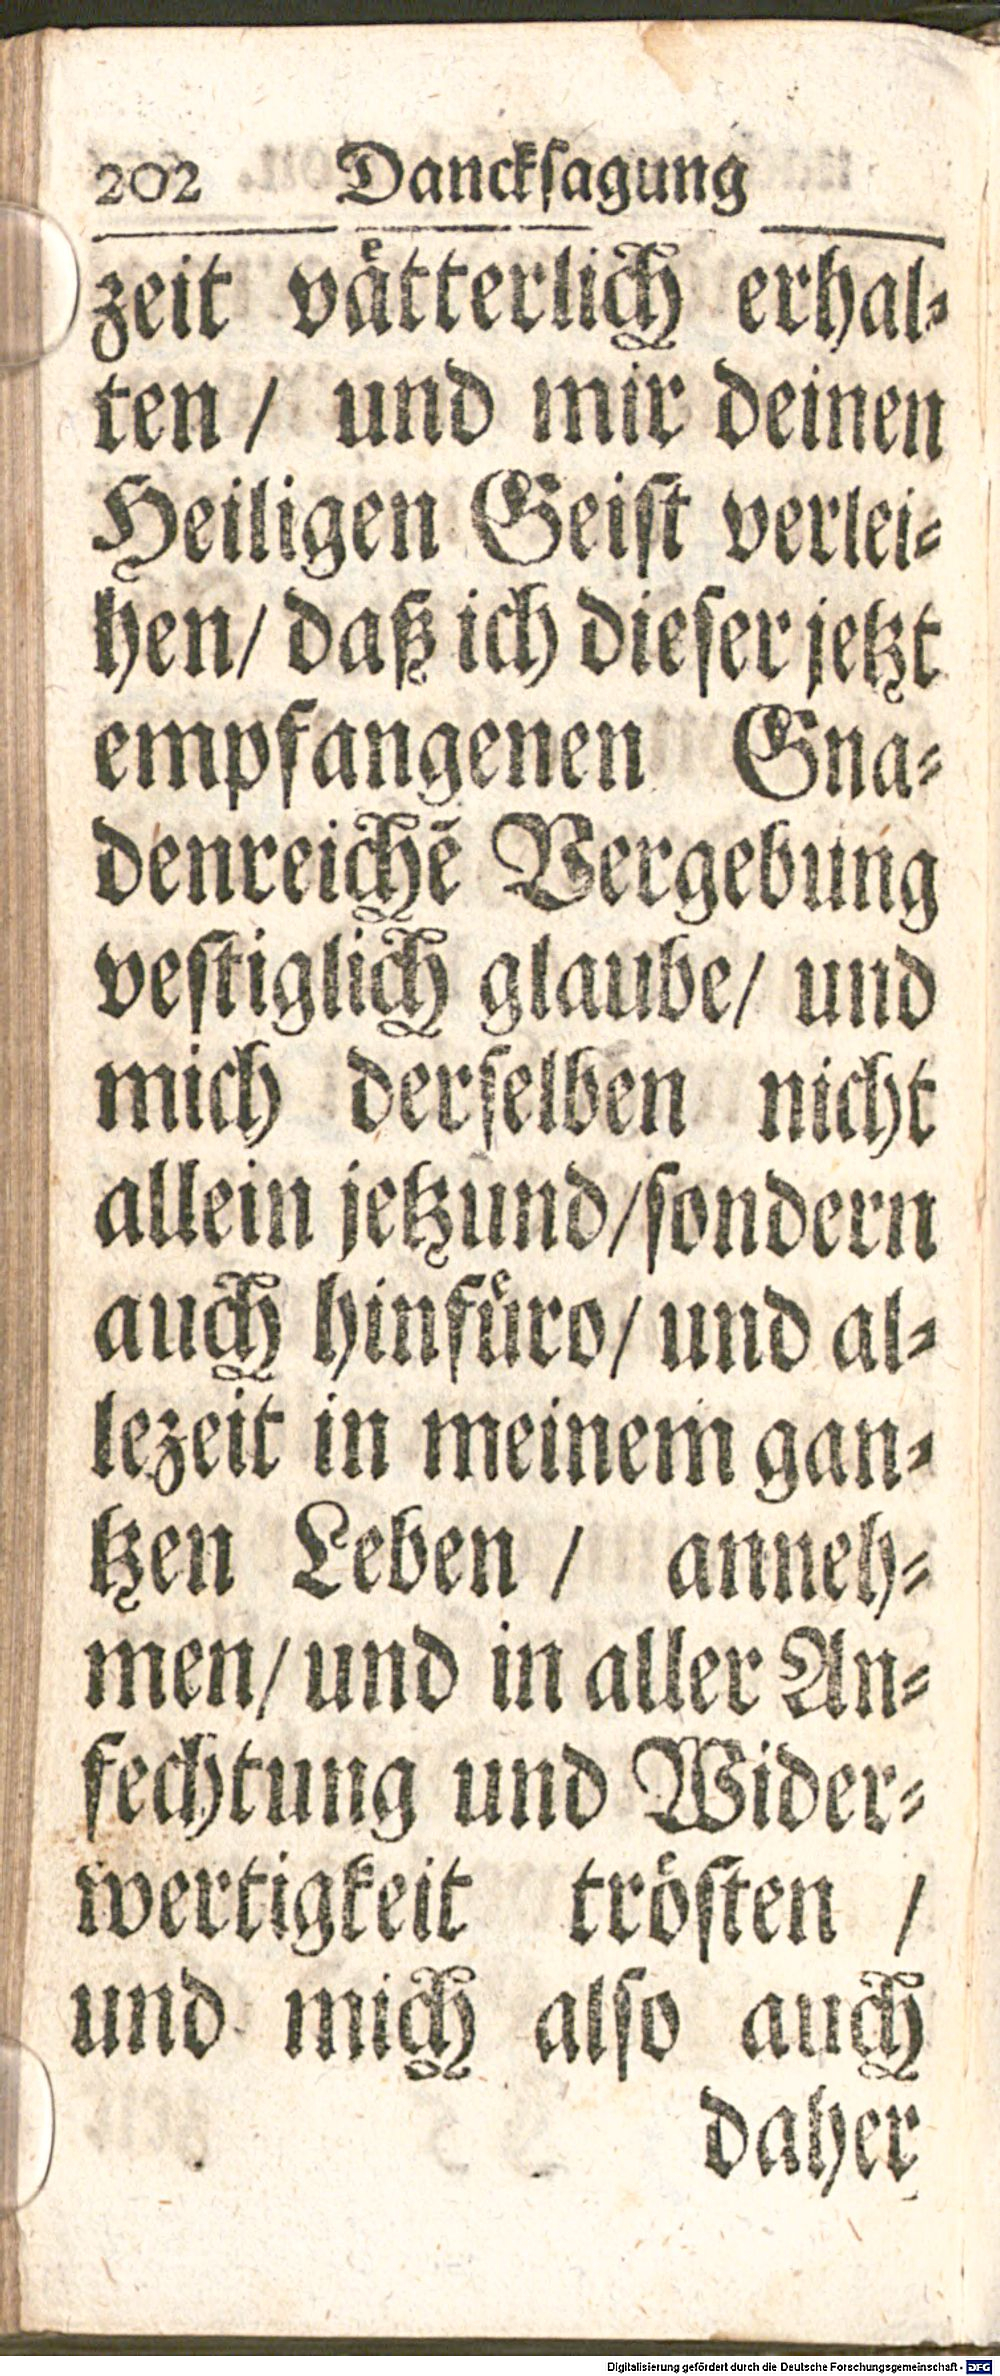 202 Danckſagung
zeit vaͤtterlich erhal⸗
ten / und mir deinen
Heiligen Geiſt verlei⸗
hen/ daß ich dieſer jetzt
empfangenen Gna⸗
denreichē Vergebung
veſtiglich glaube/ und
mich derſelben nicht
allein jetzund/ſondern
auch hinfuͤro/ und al⸗
lezeit in meinem gan⸗
tzen Leben / anneh⸗
men/ und in aller An⸗
fechtung und Wider⸗
wertigkeit troͤſten /
und mich alſo auch
daher
Digitalisierung gefördert durch die Deutsche Forschungsgemeinschaft - DFG